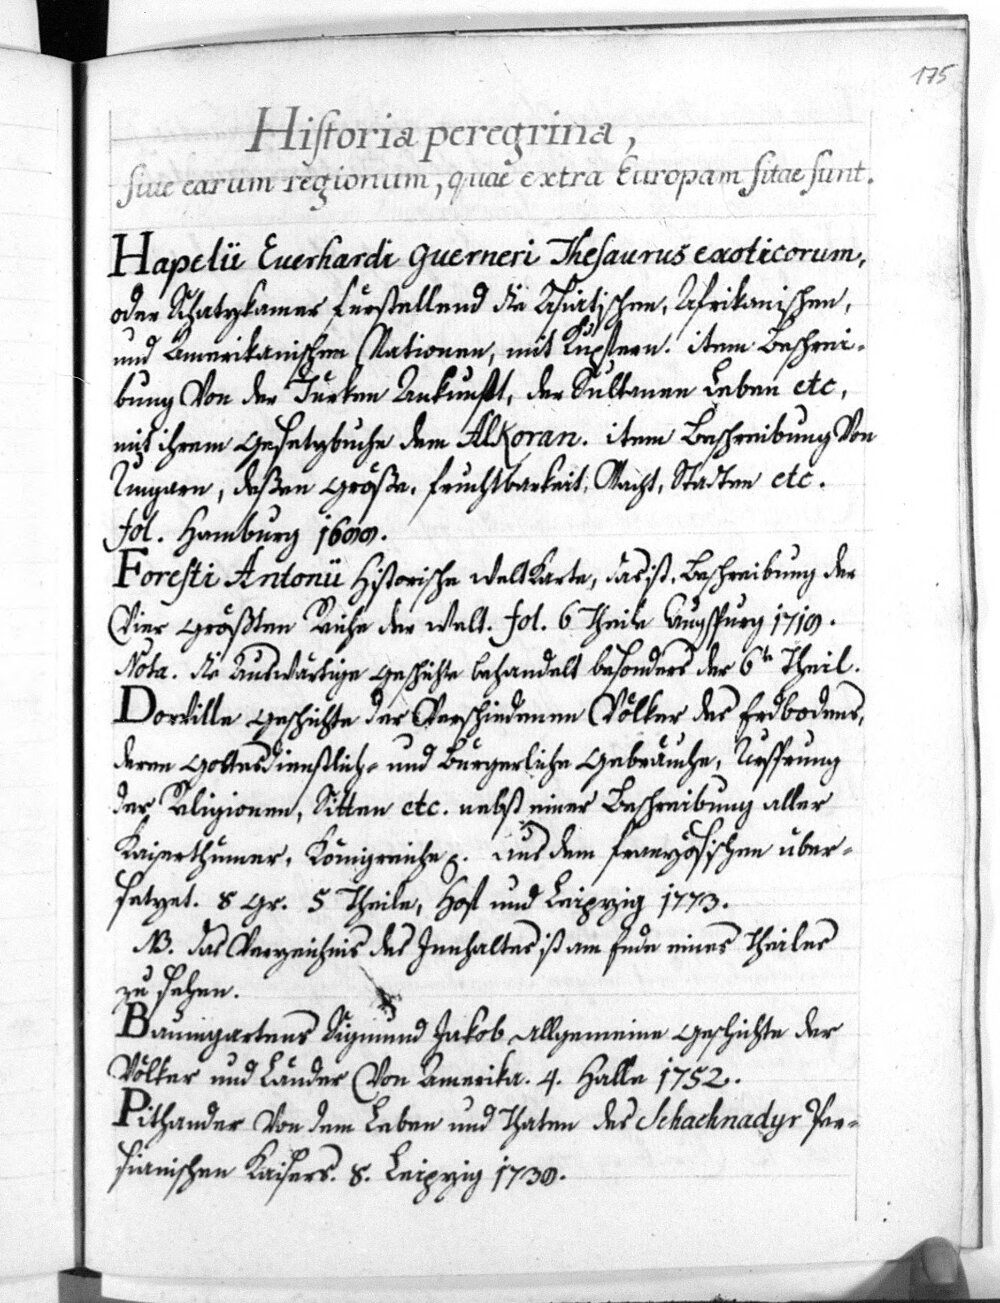 175
Historia peregrina,
siue earum regionum, quae extra Europam sitae sunt.
Hapelii Euerhardi Guerneri Thesaurus exoticorum,
oder Schatzkamer fürstellend die Asiatischen, Afrikanischen,
und Amerikanischen Nationen, mit Kupfern. item Beschrei-
bung Von der Türken Ankunft, der Sultanen Leben etc,
mit ihrem Gesetzbuche dem AlKoran. item Beschreibung Von
Ungarn, deßen Größe, fruchtbarkeit, Macht, Stadten etc.
fol. Hamburg 1688.
Foresti Antonii Historische WeltKarte, das ist, Beschreibung der
Vier Größten Reiche der Welt. fol. 6 Theile Augspurg 1718.
Nota. die Auswärtige Geschichte behandelt besonders der 6te Theil.
Dorville Geschichte der Verschiedenen Völker des Erdbodens,
deren Gottesdienstlich- und Bürgerliche Gebräuche, Ursprung
der Religionen, Sitten etc. nebst einer Beschreibung aller
Kaiserthümer, Königreiche aus dem französischen über-
setzet. 8 gr. 5 Theile, Hof und Leipzig 1773.
NB. das Verzeichnis des Innhaltes ist am Ende eines Theiles
zu sehen.
Baumgartens Sigmund Jakob allgemeine Geschichte der
Völker und Länder Von Amerika. 4. Halle 1752.
Pithander Von dem Leben und Thaten des Schachnadyr Per-
sianischen Kaisers. 8. Leipzig 1738.